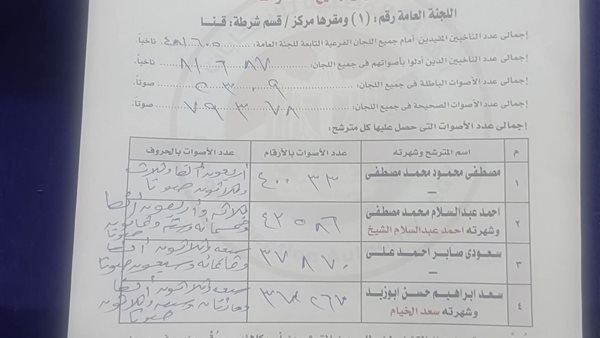 اللجنة العامة رقم: (١) ومقرها مركز / قسم شرطة: قنا
إجمالى عدد الناخبين المقيدين أمام جميع اللجان الفرعية التابعة للجنة العامة: ناخباً.
إجمالى عدد الناخبين الذين أدلوا بأصواتهم فى جميع اللجان: ٨١٦٨٧ ناخباً.
إجمالى عدد الأصوات الباطلة فى جميع اللجان: ٢٣٠٩ صوتاً.
إجمالى عدد الأصوات الصحيحة فى جميع اللجان: ٧٩٣٧٨ صوتاً.
إجمالى عدد الأصوات التى حصل عليها كل مترشح:
م اسم المترشح وشهرته عدد الأصوات بالأرقام عدد الأصوات بالحروف
١ مصطفى محمود محمد مصطفى ٤٠٠٣٣ أربعون ألفا وثلاثة
– وثلاثون صوتا
٢ احمد عبدالسلام محمد مصطفى ٤٣٥٨٦ ثلاثة وأربعون ألفا
وشهرته احمد عبدالسلام الشيخ وخمسمائة وستة وثمانون صوتا
٣ سعودى صابر احمد على ٣٧٨٧٠ سبعة وثلاثون ألفا
– وثمانمائة وسبعون صوتا
٤ سعد ابراهيم حسن ابوزيد ٣٧٢٦٧ سبعة وثلاثون ألفا
وشهرته سعد الخيام ومائتان وسبعة صوتا